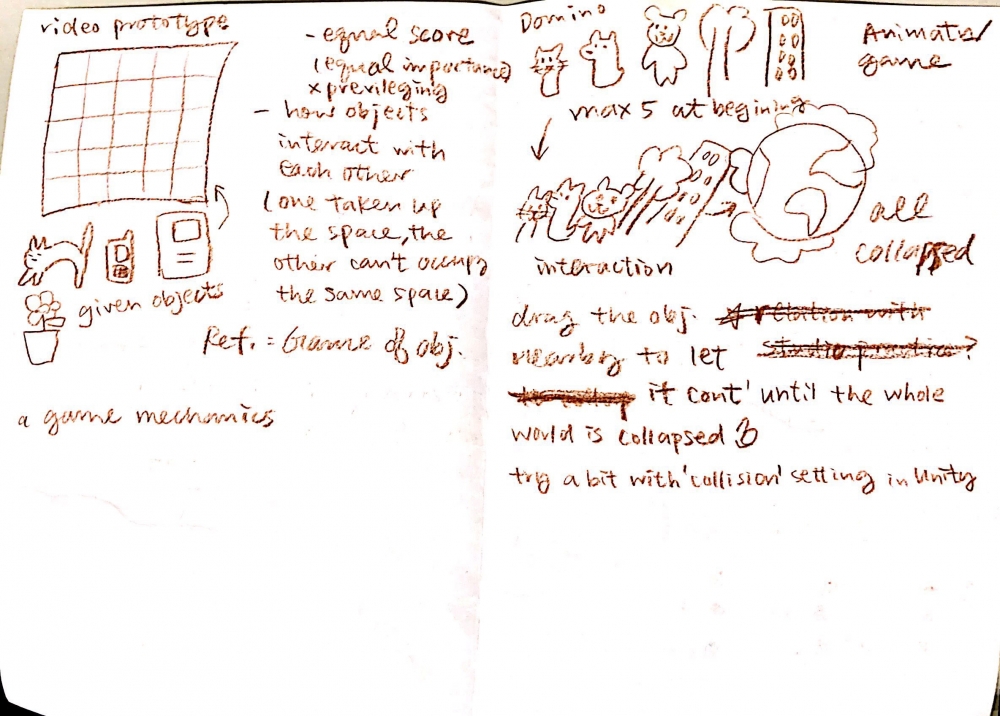 video prototype
- equal score
(equal importance)
x previleging
- how objects
interact with
each other
(one taken up
the space, the
other can't occupy
the same space)
given objects
Ref. = Game of obj.
a game mechanics
Domino
Animate/
game
max 5 at begining
all
collapsed
interaction
drag the obj. relation with
nearby to let studio practice?
it cont' until the whole
world is collapsed
try a bit with 'collision' setting in Unity